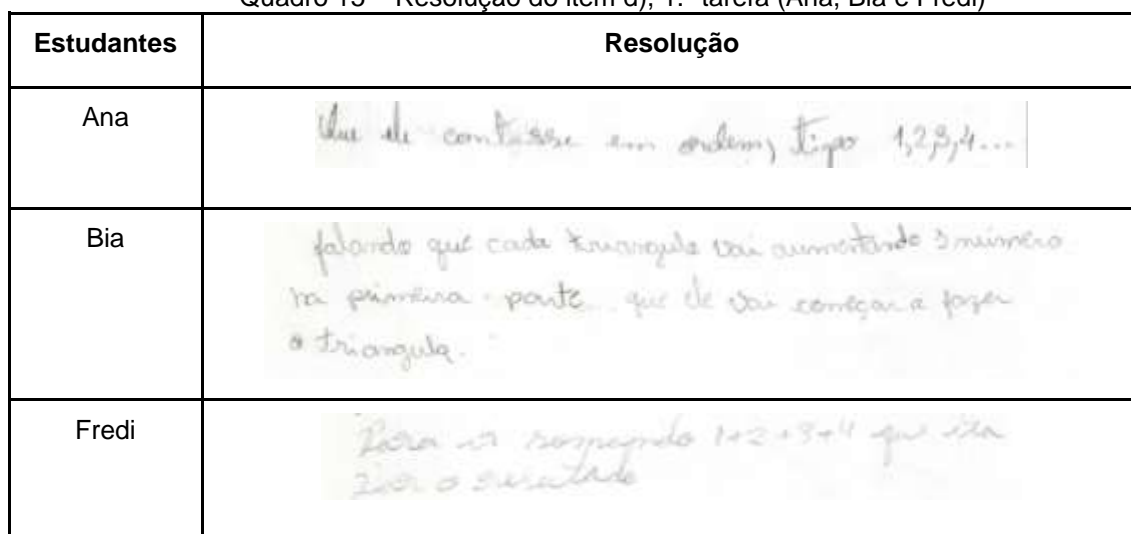 Quadro 15 – Resolução do item d), 1.ª tarefa (Ana, Bia e Fredi)
Estudantes
Resolução
Ana
Que ele contasse em ordem, tipo 1,2,3,4...
Bia
falando que cada triangulo vai aumentando 1 número
na primeira parte que ele vai começar a fazer
o triangulo.
Fredi
Para ir somando 1+2+3+4 que ira
dar o resultado